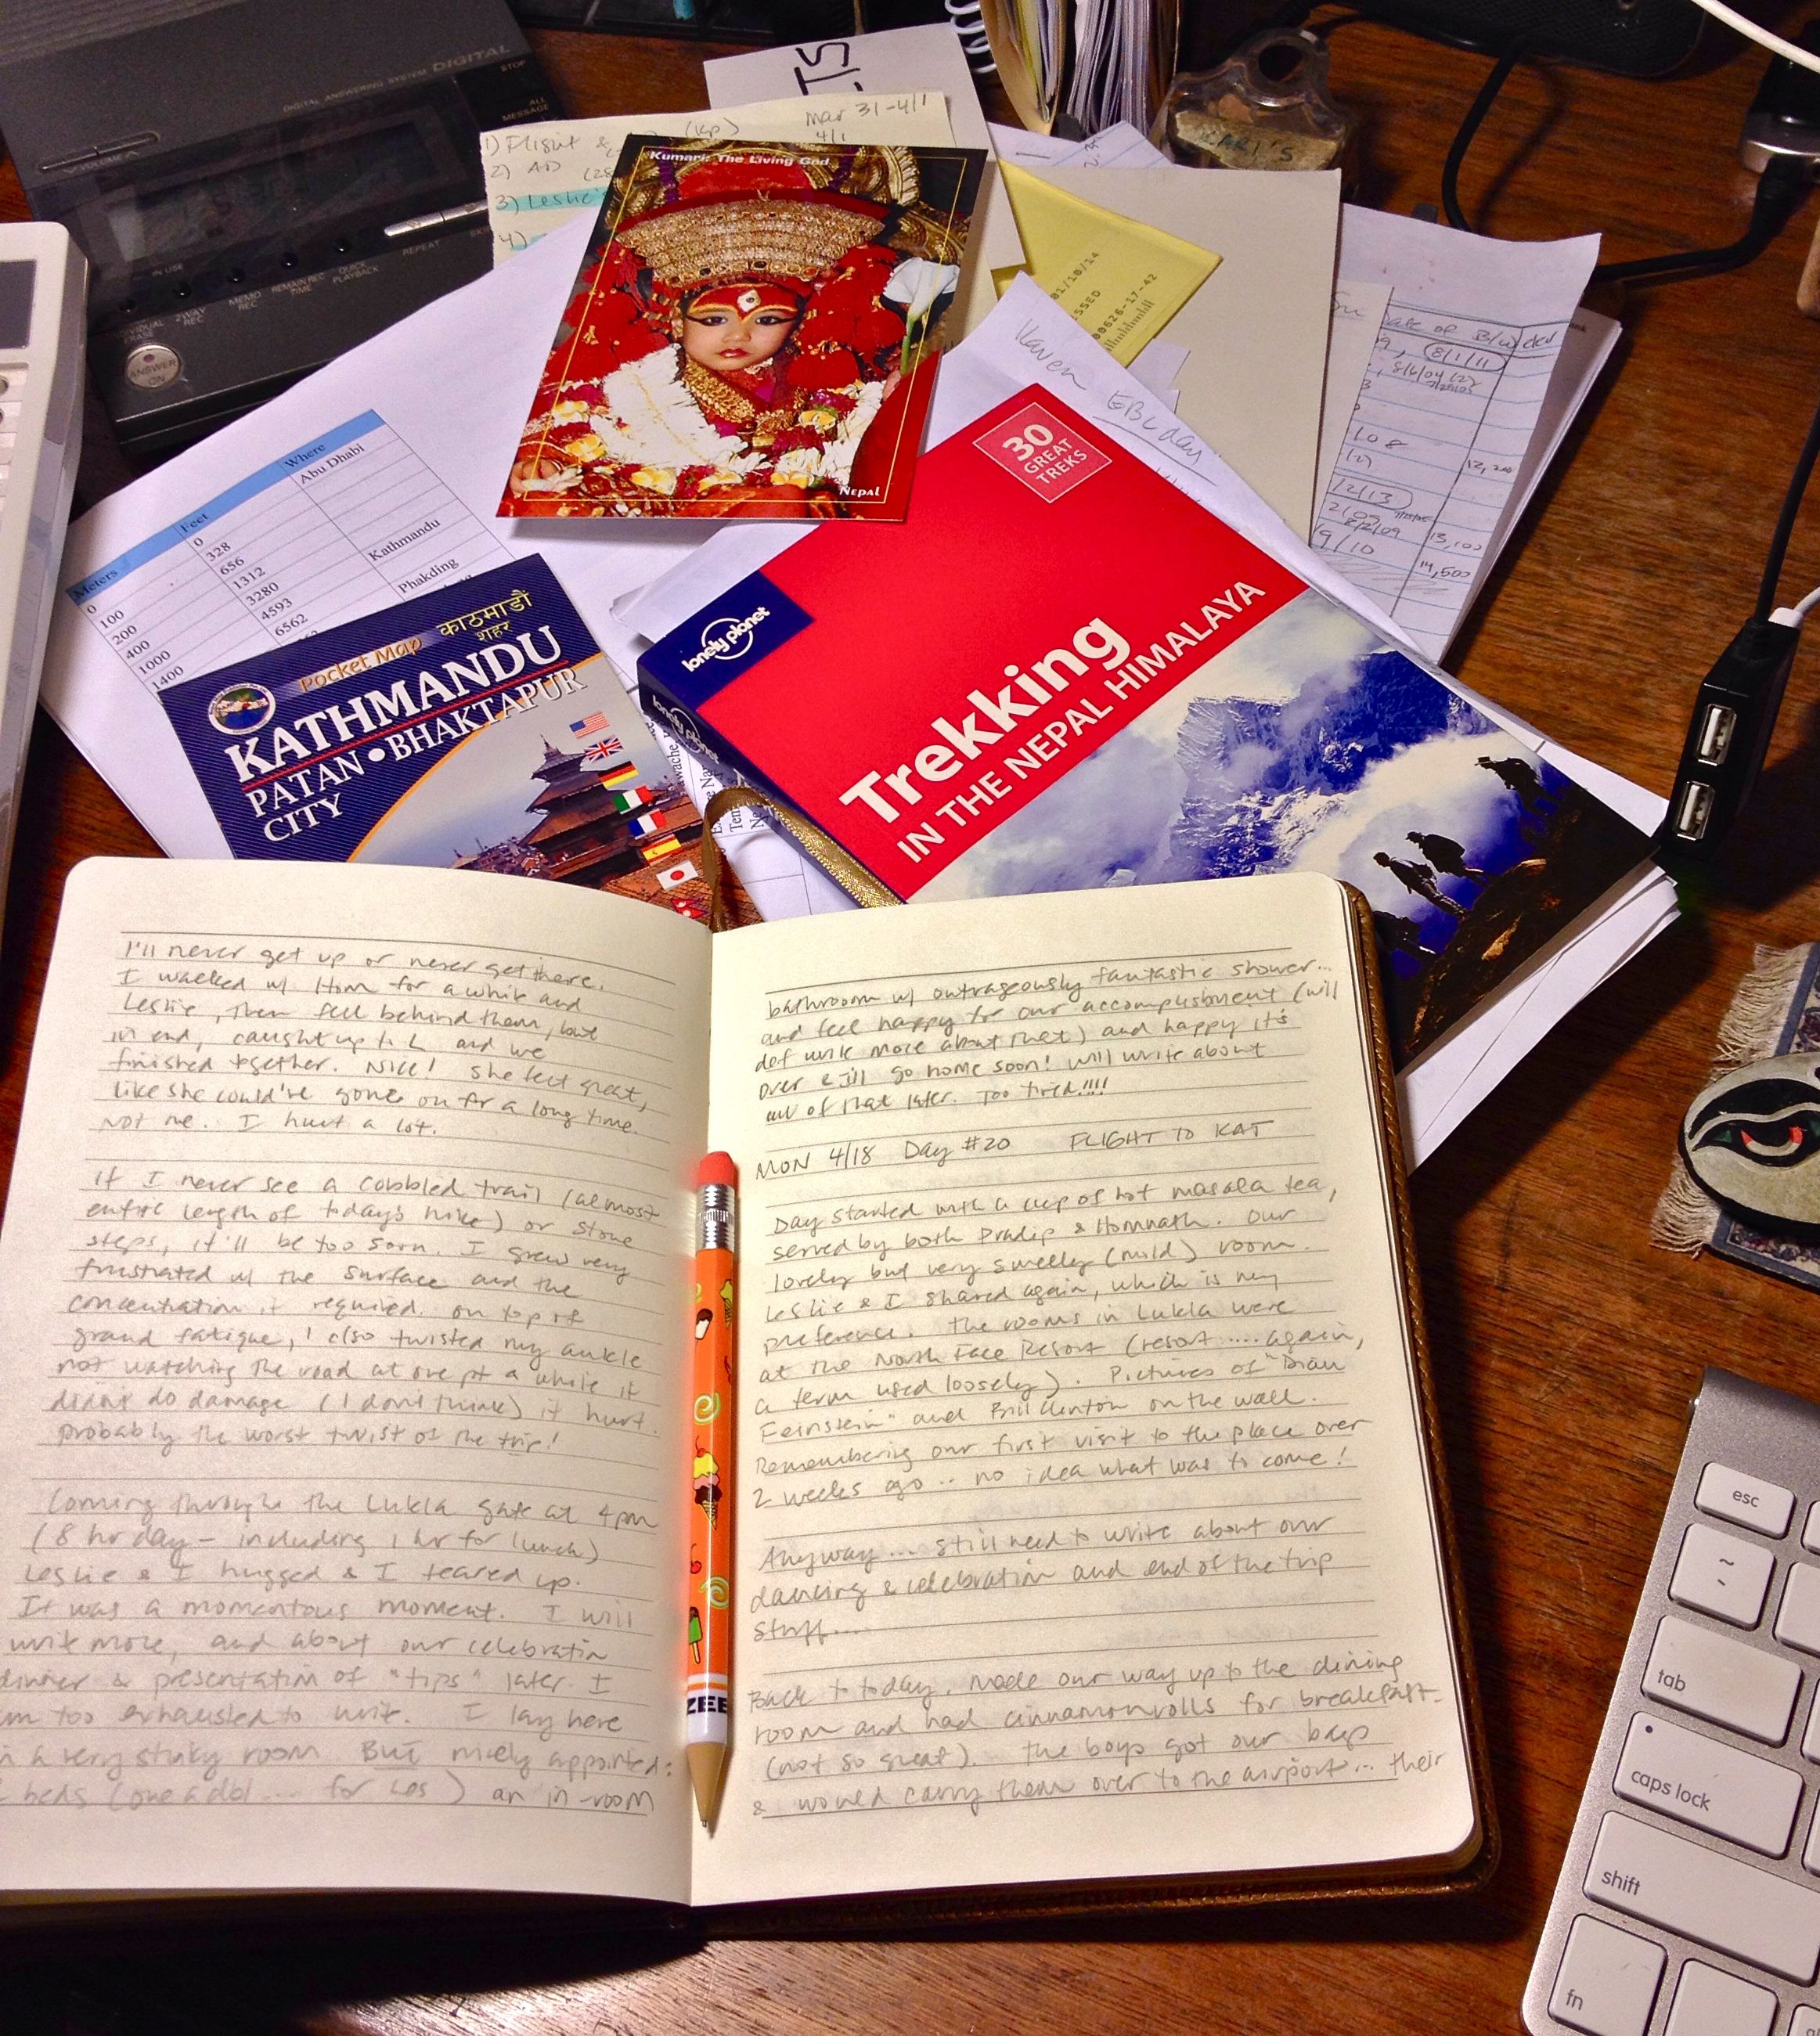 DIGITAL ANSWERING SYSTEM DIGITAL
STOP
ALL
MESSAGE
VOLUME
IN USE
2WAY
REC
MEMO
REC
REMAIN REC
TIME
QUICK
PLAYBACK
REPEAT
ERASE
ANSWER
ON
ETS
Mar 31-4/1
1) Flight & (Kp)
4/1
2) AD
3) Leslie's
4)
Kumari: The Living God
Nepal
01/10/14
00626-17-42
KARI'S
Karen
EBC day
Date of B/W dev
8/1/11
8/6/04 (2)
12/13
2/09
8/2/09
13,100
9/10
14,500
Meters Feet Where
0 0 Abu Dhabi
100 328
200 656
400 1312
1000 3280 Kathmandu
1400 4593
6562 Phakding
Pocket Map काठमाडौं
शहर
KATHMANDU
PATAN • BHAKTAPUR
CITY
30
GREAT
TREKS
lonely planet
lonely planet
Trekking
IN THE NEPAL HIMALAYA
I'll never get up or never get there.
I walked w/ Hom for a while and
Leslie, then fell behind them, but
in end, caught up to L and we
finished together. Nice! She felt great,
like she could've gone on for a long time.
Not me. I hurt a lot.
If I never see a cobbled trail (almost
entire length of today's hike) or stone
steps, it'll be too soon. I grew very
frustrated w/ the surface and the
concentration it required. On top of
grand fatigue, I also twisted my ankle
not watching the road at one pt & while it
didn't do damage (I don't think) it hurt.
probably the worst twist of the trip!
Coming through the Lukla gate at 4pm
(8 hr day - including 1 hr for lunch)
Leslie & I hugged & I teared up.
It was a momentous moment. I will
write more, and about our celebration
dinner & presentation of "tips" later. I
am too exhausted to write. I lay here
in a very stinky room. But nicely appointed:
2 beds (one a dbl.... for Les) an in-room
bathroom w/ outrageously fantastic shower...
and feel happy for our accomplishment (will
def write more about that) and happy it's
over & I'll go home soon! Will write about
all of that later. Too tired!!!!
MON 4/18 Day #20 FLIGHT TO KAT
Day started with a cup of hot masala tea,
served by both Pradip & Homnath. Our
lovely but very smelly (mold) room.
Leslie & I shared again, which is my
preference. The rooms in Lukla were
at the North Face Resort (resort .... again,
a term used loosely). Pictures of "Dian
Feinstein" and Bill Clinton on the wall.
Remembering our first visit to the place over
2 weeks ago... no idea what was to come!
Anyway... still need to write about our
dancing & celebration and end of the trip
stuff....
Back to today. Made our way up to the dining
room and had cinnamon rolls for breakfast.
(not so great). The boys got our bags
& would carry them over to the airport... their
ZEE
esc
~
tab
caps lock
shift
fn